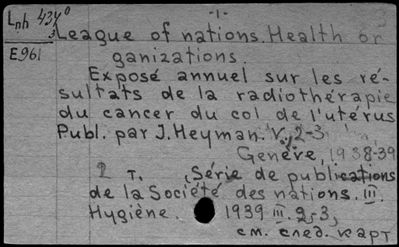 -1-
Lnh 434⁰
3
E961
League of nations. Health or
ganizations.
Exposé annuel sur les ré-
sultats de la radiothérapie
du cancer du col de l'utérus
Publ. par J. Heyman. V. 2-3
Genève, 1938-39
2 т. (Série de publications
de la Société des nations. III.
Hygiène. 1939 III. 2,3,
см. след. карт